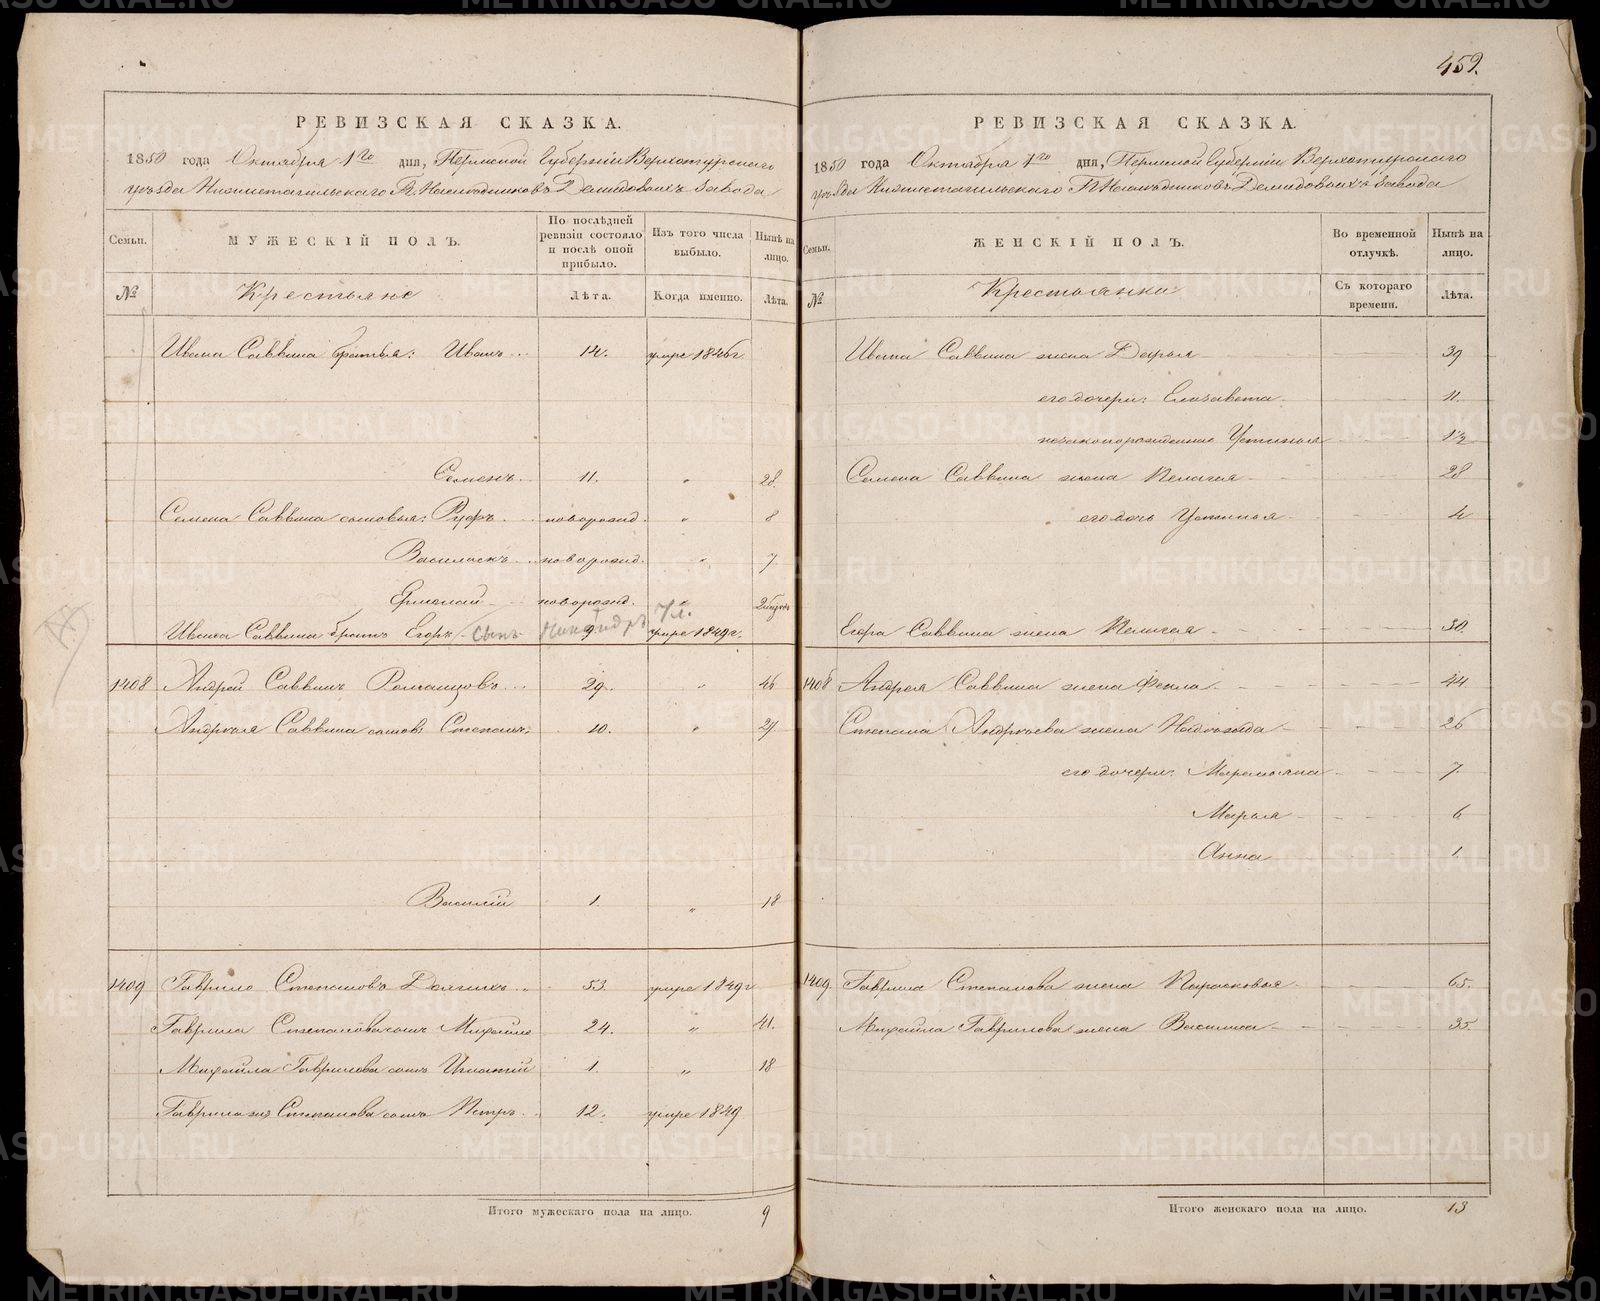 459.
РЕВИЗСКАЯ СКАЗКА.
1850 года Октября 1го дня, Пермской Губернии Верхотурского
уѣзда Нижнетагильскаго Г. Наслѣдниковъ Демидовыхъ завода
Семьи. МУЖЕСКІЙ ПОЛЪ. По послѣдней ревизіи состояло и послѣ оной прибыло. Изъ того числа выбыло. Нынѣ на лицо.
№ Крестьяне Лѣта. Когда именно. Лѣта.
Ивана Саввина братья: Иванъ 14. умре 1846г
Семенъ 11. " 28.
Семена Саввина сыновья: Руфъ новорожд. " 8
новорожд. " 7
Ермолай новорожд. 2
Ивана Саввина братъ Егоръ сынъ Никандръ 7л. 9 умре 1849г.
1408 Андрей Саввинъ 29. " 46
Андрея Саввина сынов: Степанъ 10. " 27
Василій 1 " 18
1409 Гаврило Степановъ 53. умре 1849г
Гаврила Степанова сынъ Михайло 24. " 41.
Михайла Гаврилова сынъ Игнатій 1. " 18
Гаврила Степанова сынъ Петръ 12. умре 1849
Итого мужескаго пола на лицо. 9
РЕВИЗСКАЯ СКАЗКА.
1850 года Октября 1го дня, Пермской Губерніи Верхотурскаго
уѣзда Нижнетагильскаго Г. Наслѣдниковъ Демидовыхъ завода
Семьи. ЖЕНСКІЙ ПОЛЪ. Во временной отлучкѣ. Нынѣ на лицо.
№ Крестьянки Съ котораго времени. Лѣта.
Ивана Саввина жена Дарья 39
его дочери: Елизавета 11.
незаконорожденная Устинья 1½
Семена Саввина жена Пелагея 28
его дочь Устинья 4
Егора Саввина жена Пелагея 30.
1408 Андрея Саввина жена Фекла 44
Степана Андреева жена Надежда 26
его дочери: Маремьяна 7.
Марья 6
Анна 1.
1409. Гаврила Степанова жена Парасковья 65.
Михайла Гаврилова жена Василиса 35.
Итого женскаго пола на лицо. 13
METRIKI.GASO-URAL.RU